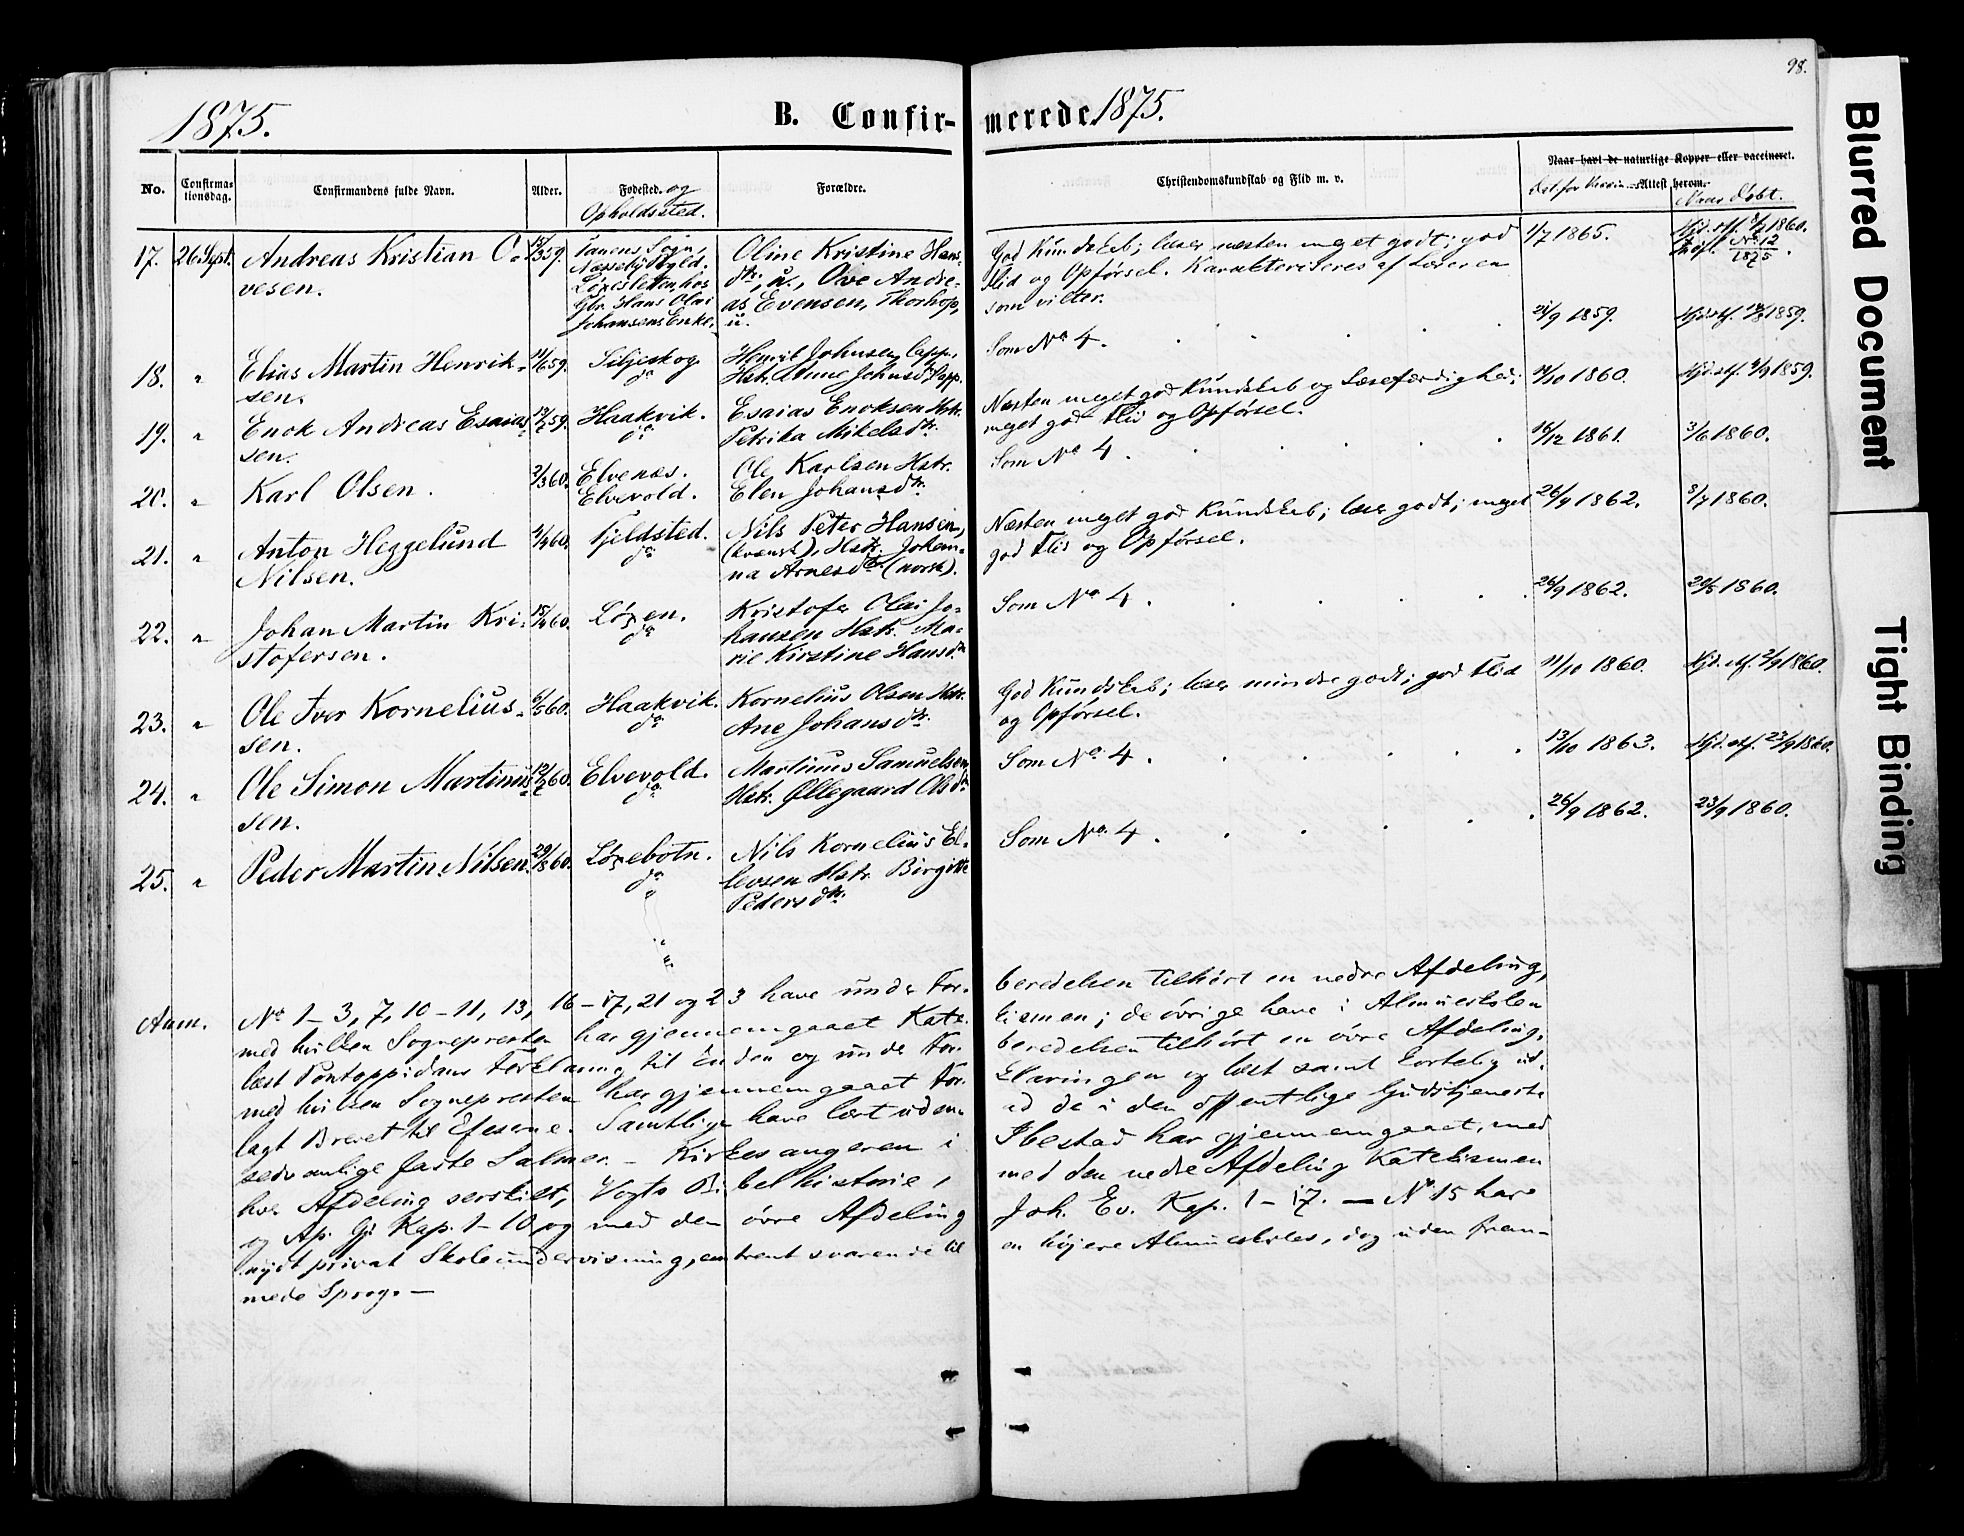 98.
1875. B. Confir- merede 1875.
No.
Confirma-
tionsdag.
Confirmandens fulde Navn.
Alder.
Fødested. og
Opholdssted.
Forældre.
Christendomskundskab og Flid m. v.
Naar havt de naturlige Kopper eller vaccineret.
Attest herom.
Naar døbt.
17. 26 Sept. Andreas Kristian O-
vesen.
59.
Tanens Sogn,
hos
Gbr. Hans Olai
Johansens Enke.
Oline Kristine Hans-
dtr., u., Ove Andre-
as Evensen, Thorhop,
u.
God Kundskab; læser næsten meget godt; god
Flid og Opførsel. Karakteriseres af Læreren
som vilter.
1/7 1865.
Hjd. stf. 8/7 1860.
No 12
1875.
18. " Elias Martin Henrik-
sen.
11/6 59.
Siljeskog.
do
Henrik Johnsen, lapp.,
Hstr. Anne Johnsdtr lapp.
Som No 4.
21/9 1859.
Hjd. stf. 1859.
19. " Enok Andreas Esaias-
sen.
59.
Haakvik.
do
Esaias Enoksen Hstr.
Petrika Mikelsdtr.
Næsten meget god Kundskab og Læsefærdighed;
meget god Flid og Opførsel.
14/10 1860.
Hjd. stf. 4/9 1859.
20. " Karl Olsen.
2/3 60.
Elvenæs.
Elvevold.
Ole Karlsen Hstr.
Elen Johansdtr.
Som No 4.
16/12 1861.
3/6 1860.
21. " Anton Heggelund
Nilsen.
4/4 60.
Fjeldsted.
do
Nils Peter Hansen,
(kvænsk), Hstr. Johan-
na Arnesdtr (norsk).
Næsten meget god Kundskab; læser godt; meget
god Flid og Opførsel.
26/9 1862.
8/7 1860.
22. " Johan Martin Kri-
stofersen.
15/4 60.
Løxen.
do
Kristofer Olai Jo-
hansen Hstr. Ma-
rie Kirstine Hansdtr.
Som No 4.
26/9 1862.
20/5 1860.
23. " Ole Iver Kornelius-
sen.
6/5 60.
Haakvik.
do
Kornelius Olsen Hstr.
Ane Johansdtr.
God Kundskab; læser mindre godt; god Flid
og Opførsel.
11/10 1860.
Hjd. stf. 2/9 1860.
24. " Ole Simon Martinus-
sen.
60.
Elvevold.
do
Martinus Samuelsen
Hstr. Øllegaard Olsdtr
Som No 4.
13/10 1863.
Hjd. stf. 23/9 1860.
25. " Peder Martin Nilsen.
29/8 60.
Løxebotn.
do
Nils Kornelius El-
levsen Hstr. Birgitte
Pedersdtr.
Som No 4.
26/9 1862.
23/9 1860.
Anm. No 1-3, 7, 10-11, 13, 16-17, 21 og 23 have under For- beredelsen tilhørt en nedre Afdeling,
med hvilken Sognepresten har gjennemgaaet Kate- kismen; de øvrige have i Almueskolen
læst Pontoppidans Forklaring til Enden og under For- beredelsen tilhørt en øvre Afdeling,
med hvilken Sognepresten har gjennemgaaet For- klaringen og læst samt kortelig ud-
lagt Brevet til Efeserne. Samtlige have lært uden- ad de i den offentlige Gudstjeneste
sedvanlige faste Salmer. - Kirkesangeren i Ibestad har gjennemgaaet, med
hver Afdeling serskilt, Vogts Bibelhistorie, med den nedre Afdeling Katekismen
og Ap. Gj. Kap. 1-10, og med den øvre Afdeling Joh. Ev. Kap. 1-17. - No 15 har
nydt privat Skoleundervisning, omtrent svarende til en højere Almueskoles, dog uden frem-
mede Sprog. -
Blurred Document
Tight Binding